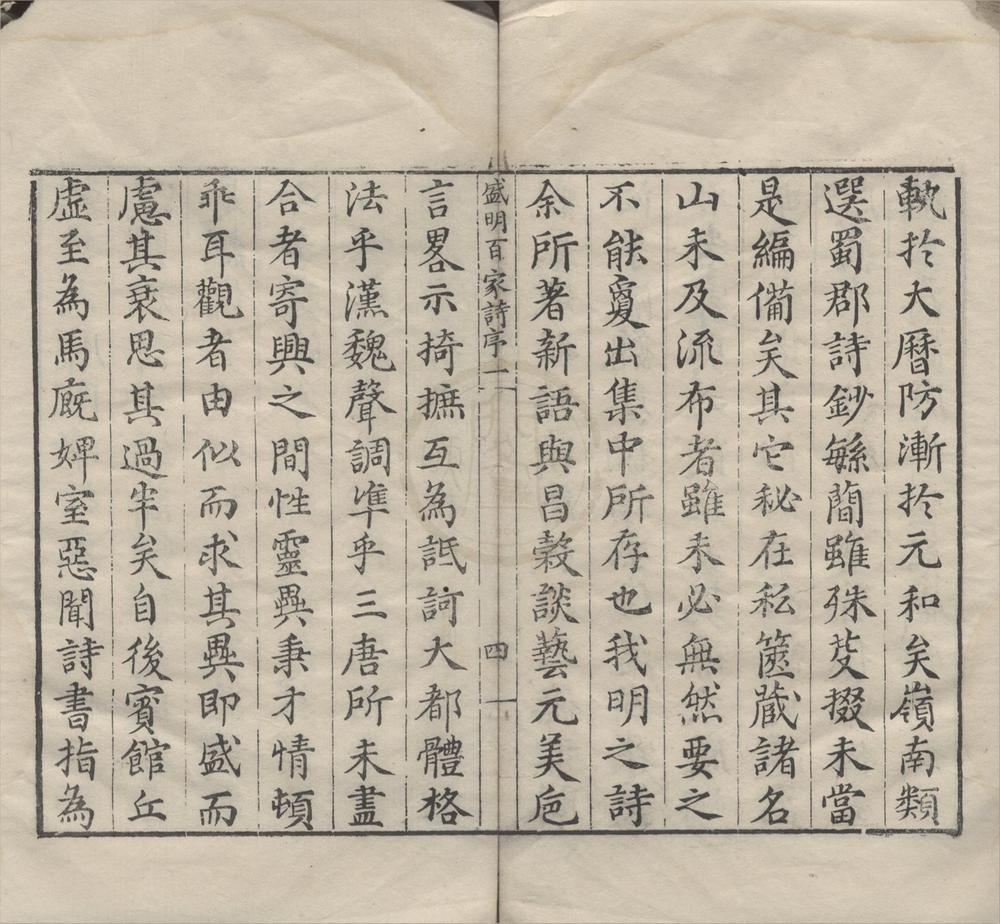 軌扵大曆防漸扵元和矣嶺南類
選蜀郡詩鈔緐蕑雖殊芟掇未當
是編備矣其它秘在私篋蔵諸名
山未及流布者雖未必無然要之
不能敻出集中所存也我明之詩
余所著新語與昌榖談藝元美巵
盛明百家詩序一 四 一
言畧示掎摭互為詆訶大都體格
法乎漢魏聲調凖乎三唐所未盡
合者寄興之間性靈異秉才情頓
乖耳觀者由似而求其異即盛而
慮其衰思其過半矣自後賓館丘
虛至為馬廐婢室惡聞詩書指為